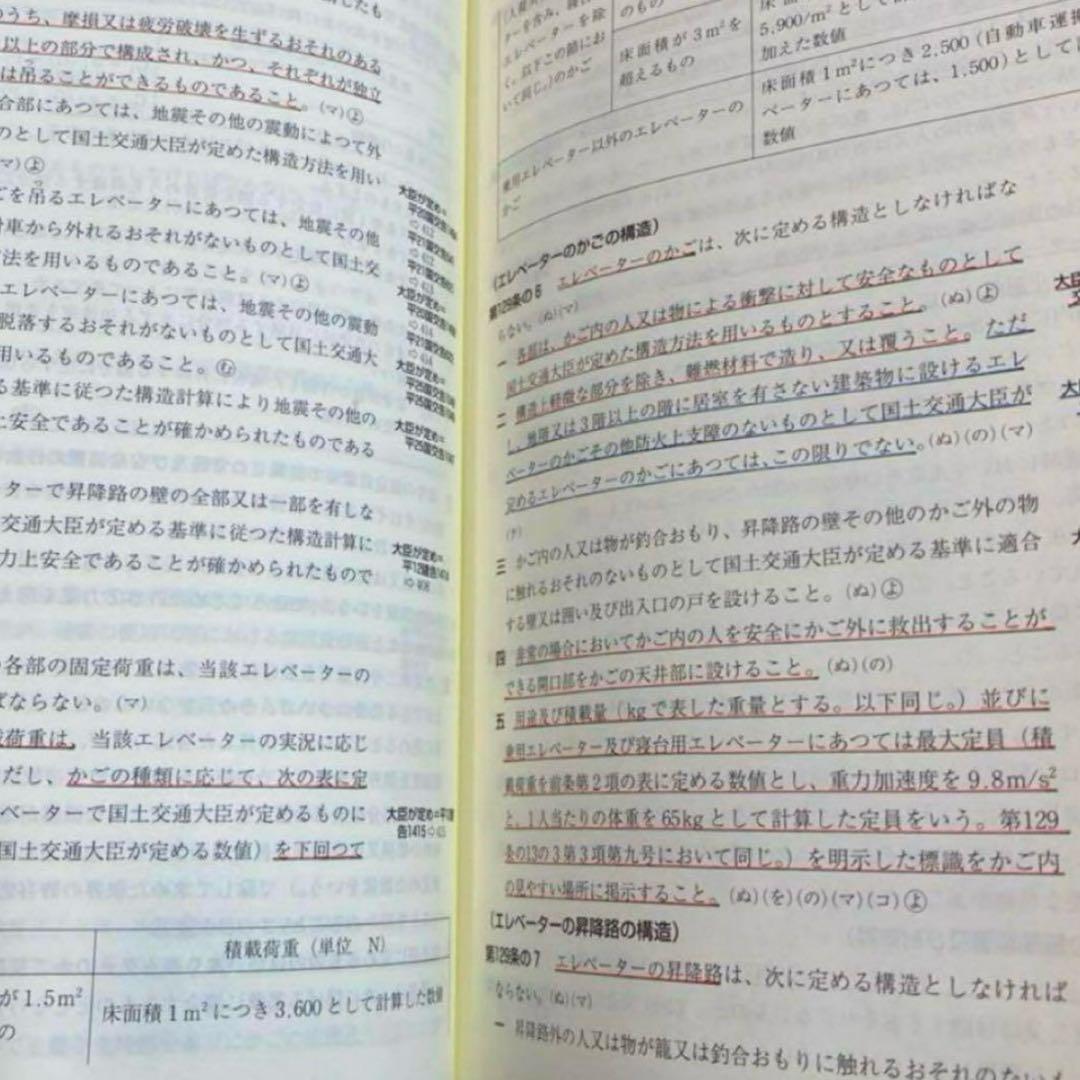 のうち、摩損又は疲労破壊を生ずるおそれのある
以上の部分で構成され、かつ、それぞれが独立
は吊ることができるものであること。(マ)よ
合部にあつては、地震その他の震動によつて外
のとして国土交通大臣が定めた構造方法を用い
(マ)よ
ごを吊るエレベーターにあつては、地震その他
車から外れるおそれがないものとして国土交
方法を用いるものであること。(マ)よ
エレベーターにあつては、地震その他の震動
脱落するおそれがないものとして国土交通大
用いるものであること。む
る基準に従つた構造計算により地震その他の
上安全であることが確かめられたものである
ターで昇降路の壁の全部又は一部を有しな
交通大臣が定める基準に従つた構造計算に
力上安全であることが確かめられたもので
各部の固定荷重は、当該エレベーターの
ばならない。(マ)
載荷重は、当該エレベーターの実況に応じ
ただし、かごの種類に応じて、次の表に定
ベーターで国土交通大臣が定めるものに
国土交通大臣が定める数値)を下回つて
大臣が定め=
大臣が定め=
大臣が定め=
大臣が定め=
大臣が定め=
告1415
積載荷重(単位 N)
が1.5m²
の
床面積1m²につき3,600として計算した数値
ターを含み、
エレベーターを除
く。以下この節にお
いて同じ。)のかご
のもの
床面積が3m²を
超えるもの
5,900/m²として
加えた数値
床面積1m²につき2,500(自動車運搬
ベーターにあつては、1,500)として
数値
乗用エレベーター以外のエレベーターの
かご
(エレベーターのかごの構造)
第129条の6 エレベーターのかごは、次に定める構造としなければな
らない。(ぬ)(マ)
一 各部は、かご内の人又は物による衝撃に対して安全なものとして
国土交通大臣が定めた構造方法を用いるものとすること。(ぬ)よ
二 構造上軽微な部分を除き、難燃材料で造り、又は覆うこと。ただ
し、地階又は3階以上の階に居室を有さない建築物に設けるエレ
ベーターのかごその他防火上支障のないものとして国土交通大臣が
定めるエレベーターのかごにあつては、この限りでない。(ぬ)(の)(マ)
三 かご内の人又は物が釣合おもり、昇降路の壁その他のかご外の物
に触れるおそれのないものとして国土交通大臣が定める基準に適合
する壁又は囲い及び出入口の戸を設けること。(ぬ)よ
四 非常の場合においてかご内の人を安全にかご外に救出することが
できる開口部をかごの天井部に設けること。(ぬ)(の)
五 用途及び積載量(kgで表した重量とする。以下同じ。)並びに
乗用エレベーター及び寝台用エレベーターにあつては最大定員(積
載荷重を前条第2項の表に定める数値とし、重力加速度を9.8m/s²
と、1人当たりの体重を65kgとして計算した定員をいう。第129
条の13の3第3項第九号において同じ。)を明示した標識をかご内
の見やすい場所に掲示すること。(ぬ)(を)(の)(マ)(コ)よ
(エレベーターの昇降路の構造)
第129条の7 エレベーターの昇降路は、次に定める構造としなければ
ならない。(ぬ)(マ)
一 昇降路外の人又は物が籠又は釣合おもりに触れるおそれのない